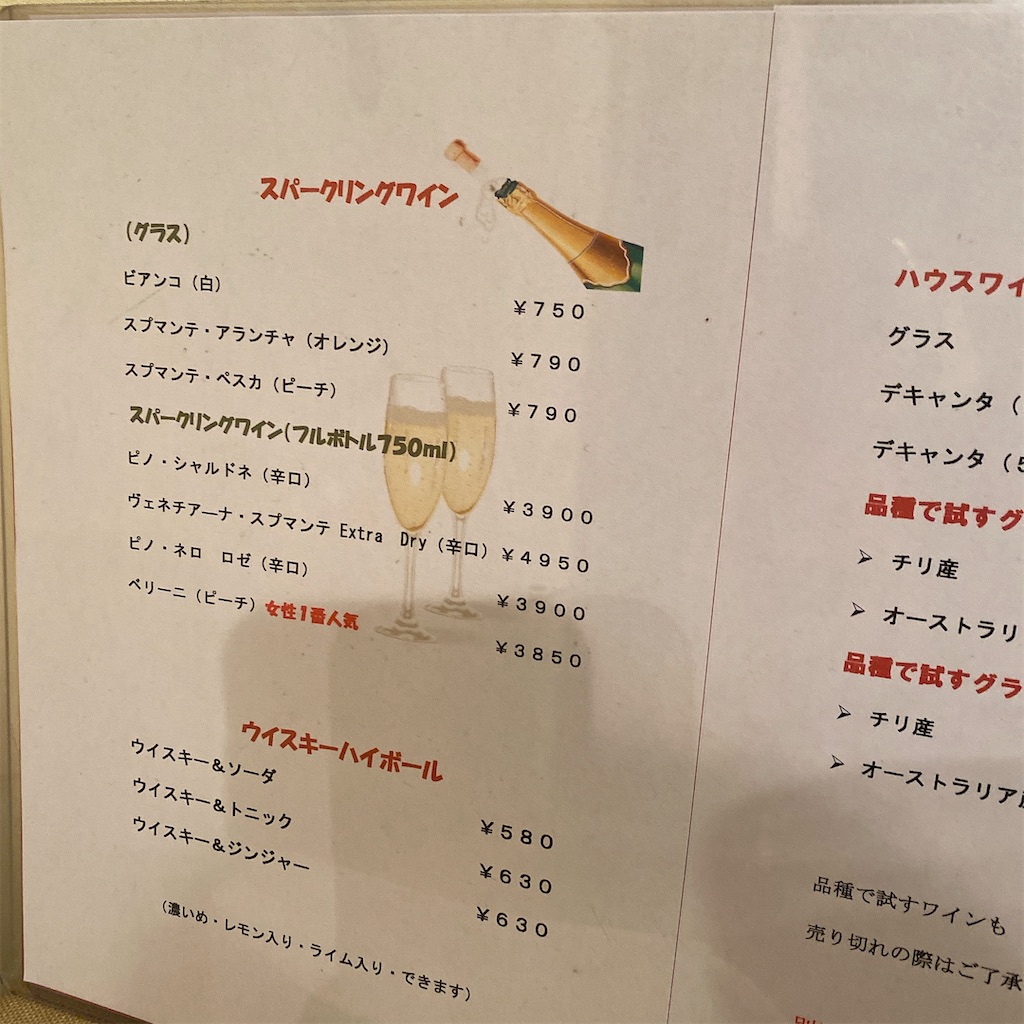 スパークリングワイン
(グラス)
ビアンコ（白）
￥７５０
スプマンテ・アランチャ（オレンジ）
￥７９０
スプマンテ・ペスカ（ピーチ）
￥７９０
スパークリングワイン(フルボトル750ml)
ピノ・シャルドネ（辛口）
￥３９００
ヴェネチアーナ・スプマンテ Extra Dry（辛口）
￥４９５０
ピノ・ネロ　ロゼ（辛口）
￥３９００
ベリーニ（ピーチ）女性1番人気
￥３８５０
ウイスキーハイボール
ウイスキー＆ソーダ
￥５８０
ウイスキー＆トニック
￥６３０
ウイスキー＆ジンジャー
￥６３０
（濃いめ・レモン入り・ライム入り・できます）
ハウスワイ
グラス
デキャンタ（
デキャンタ（５
品種で試すグ
➢ チリ産
➢ オーストラリ
品種で試すグラ
➢ チリ産
➢ オーストラリア
品種で試すワインも
売り切れの際はご了承